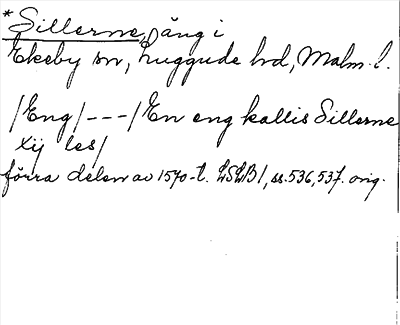 *Sillerne, äng i
Ekeby sn, Luggude hd, Malm. l.
/Eng/---/En eng kallis Sillerne
xij les/
förra delen av 1570-t. LSLB1, ss.536,537. orig.